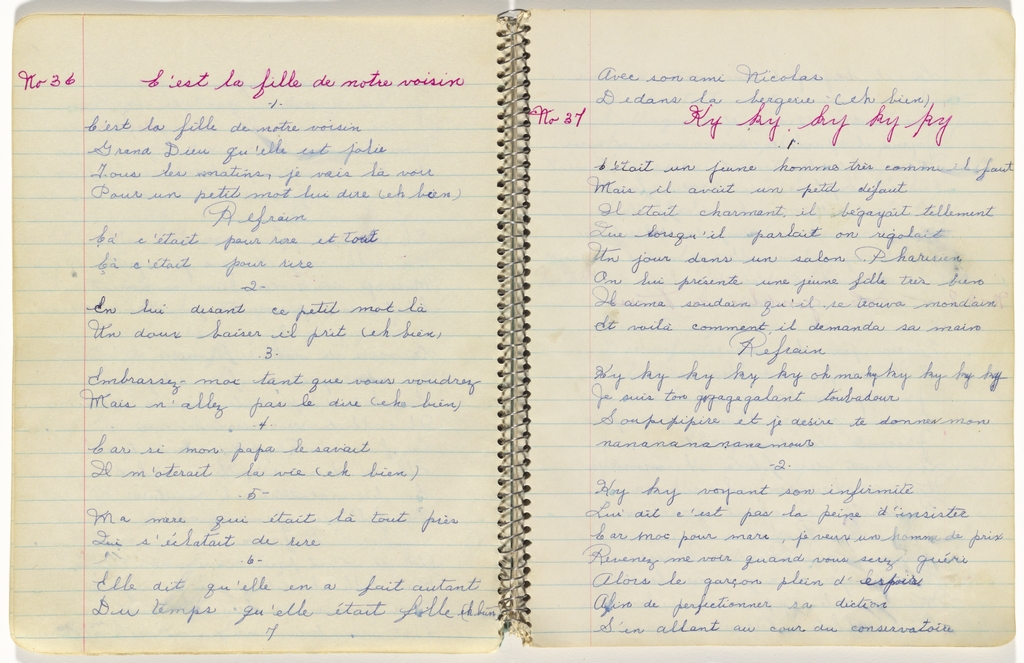 No 36 C'est la fille de notre voisin
-1-
C'est la fille de notre voisin
Grand Dieu qu'elle est jolie
Tous les matins, je vais la voir
Pour un petit mot lui dire (eh bien)
Refrain
Çà c'était pour rire et tout
Çà c'était pour rire
-2-
En lui disant ce petit mot là
Un doux baiser il prit (eh bien)
-3-
Embrassez-moi tant que vous voudrez
Mais n'allez pas le dire (eh bien)
-4-
Car si mon papa le savait
Il m'oterait la vie (eh bien)
-5-
Ma mere qui était là tout près
Qui s'éclatait de rire
-6-
Elle dit qu'elle en a fait autant
Du temps qu'elle était fille (eh bien
7
Avec son ami Nicolas
Dedans la bergerie (eh bien)
No 37 Ky ky ky ky ky
1
C'était un jeune homme très comme il faut
Mais il avait un petit défaut
Il était charmant, il bégayait tellement
Que lorsqu'il parlait on rigolait
Un jour dans un salon
On lui présente une jeune fille très bien
Il aima soudain qu'il se trouva mondain
Et voilà comment il demanda sa main
Refrain
Ky ky ky ky ky oh ma ky ky ky ky ky
Je suis ton gagagagalant toubadour
Soupipipire et je désire te donner mon
nanananananamour
-2-
Ky ky voyant son infirmité
Lui dit c'est pas la peine d'insister
Car moi pour mari, je veux un homme de prix
Revenez me voir quand vous serez guéri
Alors le garçon plein d'espoir
Afin de perfectionner sa diction
S'en allant au cour du conservatoire